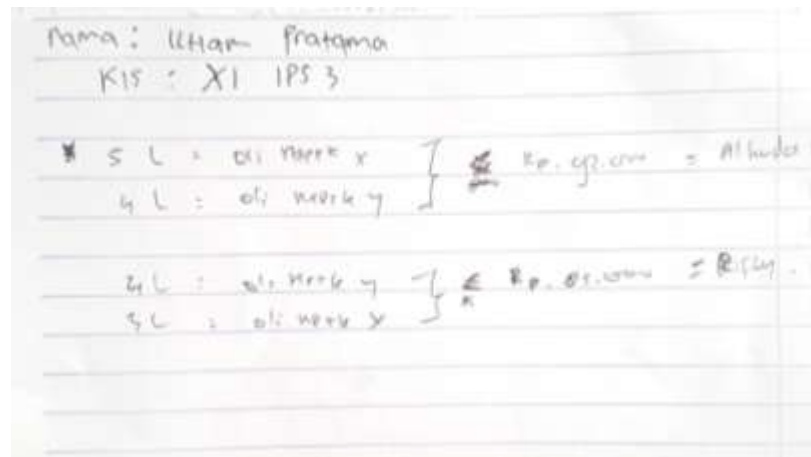 Nama : Ilham Pratama
Kls : XI IPS 3
5 L = oli merk x
4 L = oli merk y
Rp. = Alhuda
4 L = oli merk y
3 L = oli merk x
Rp. = Rifky.